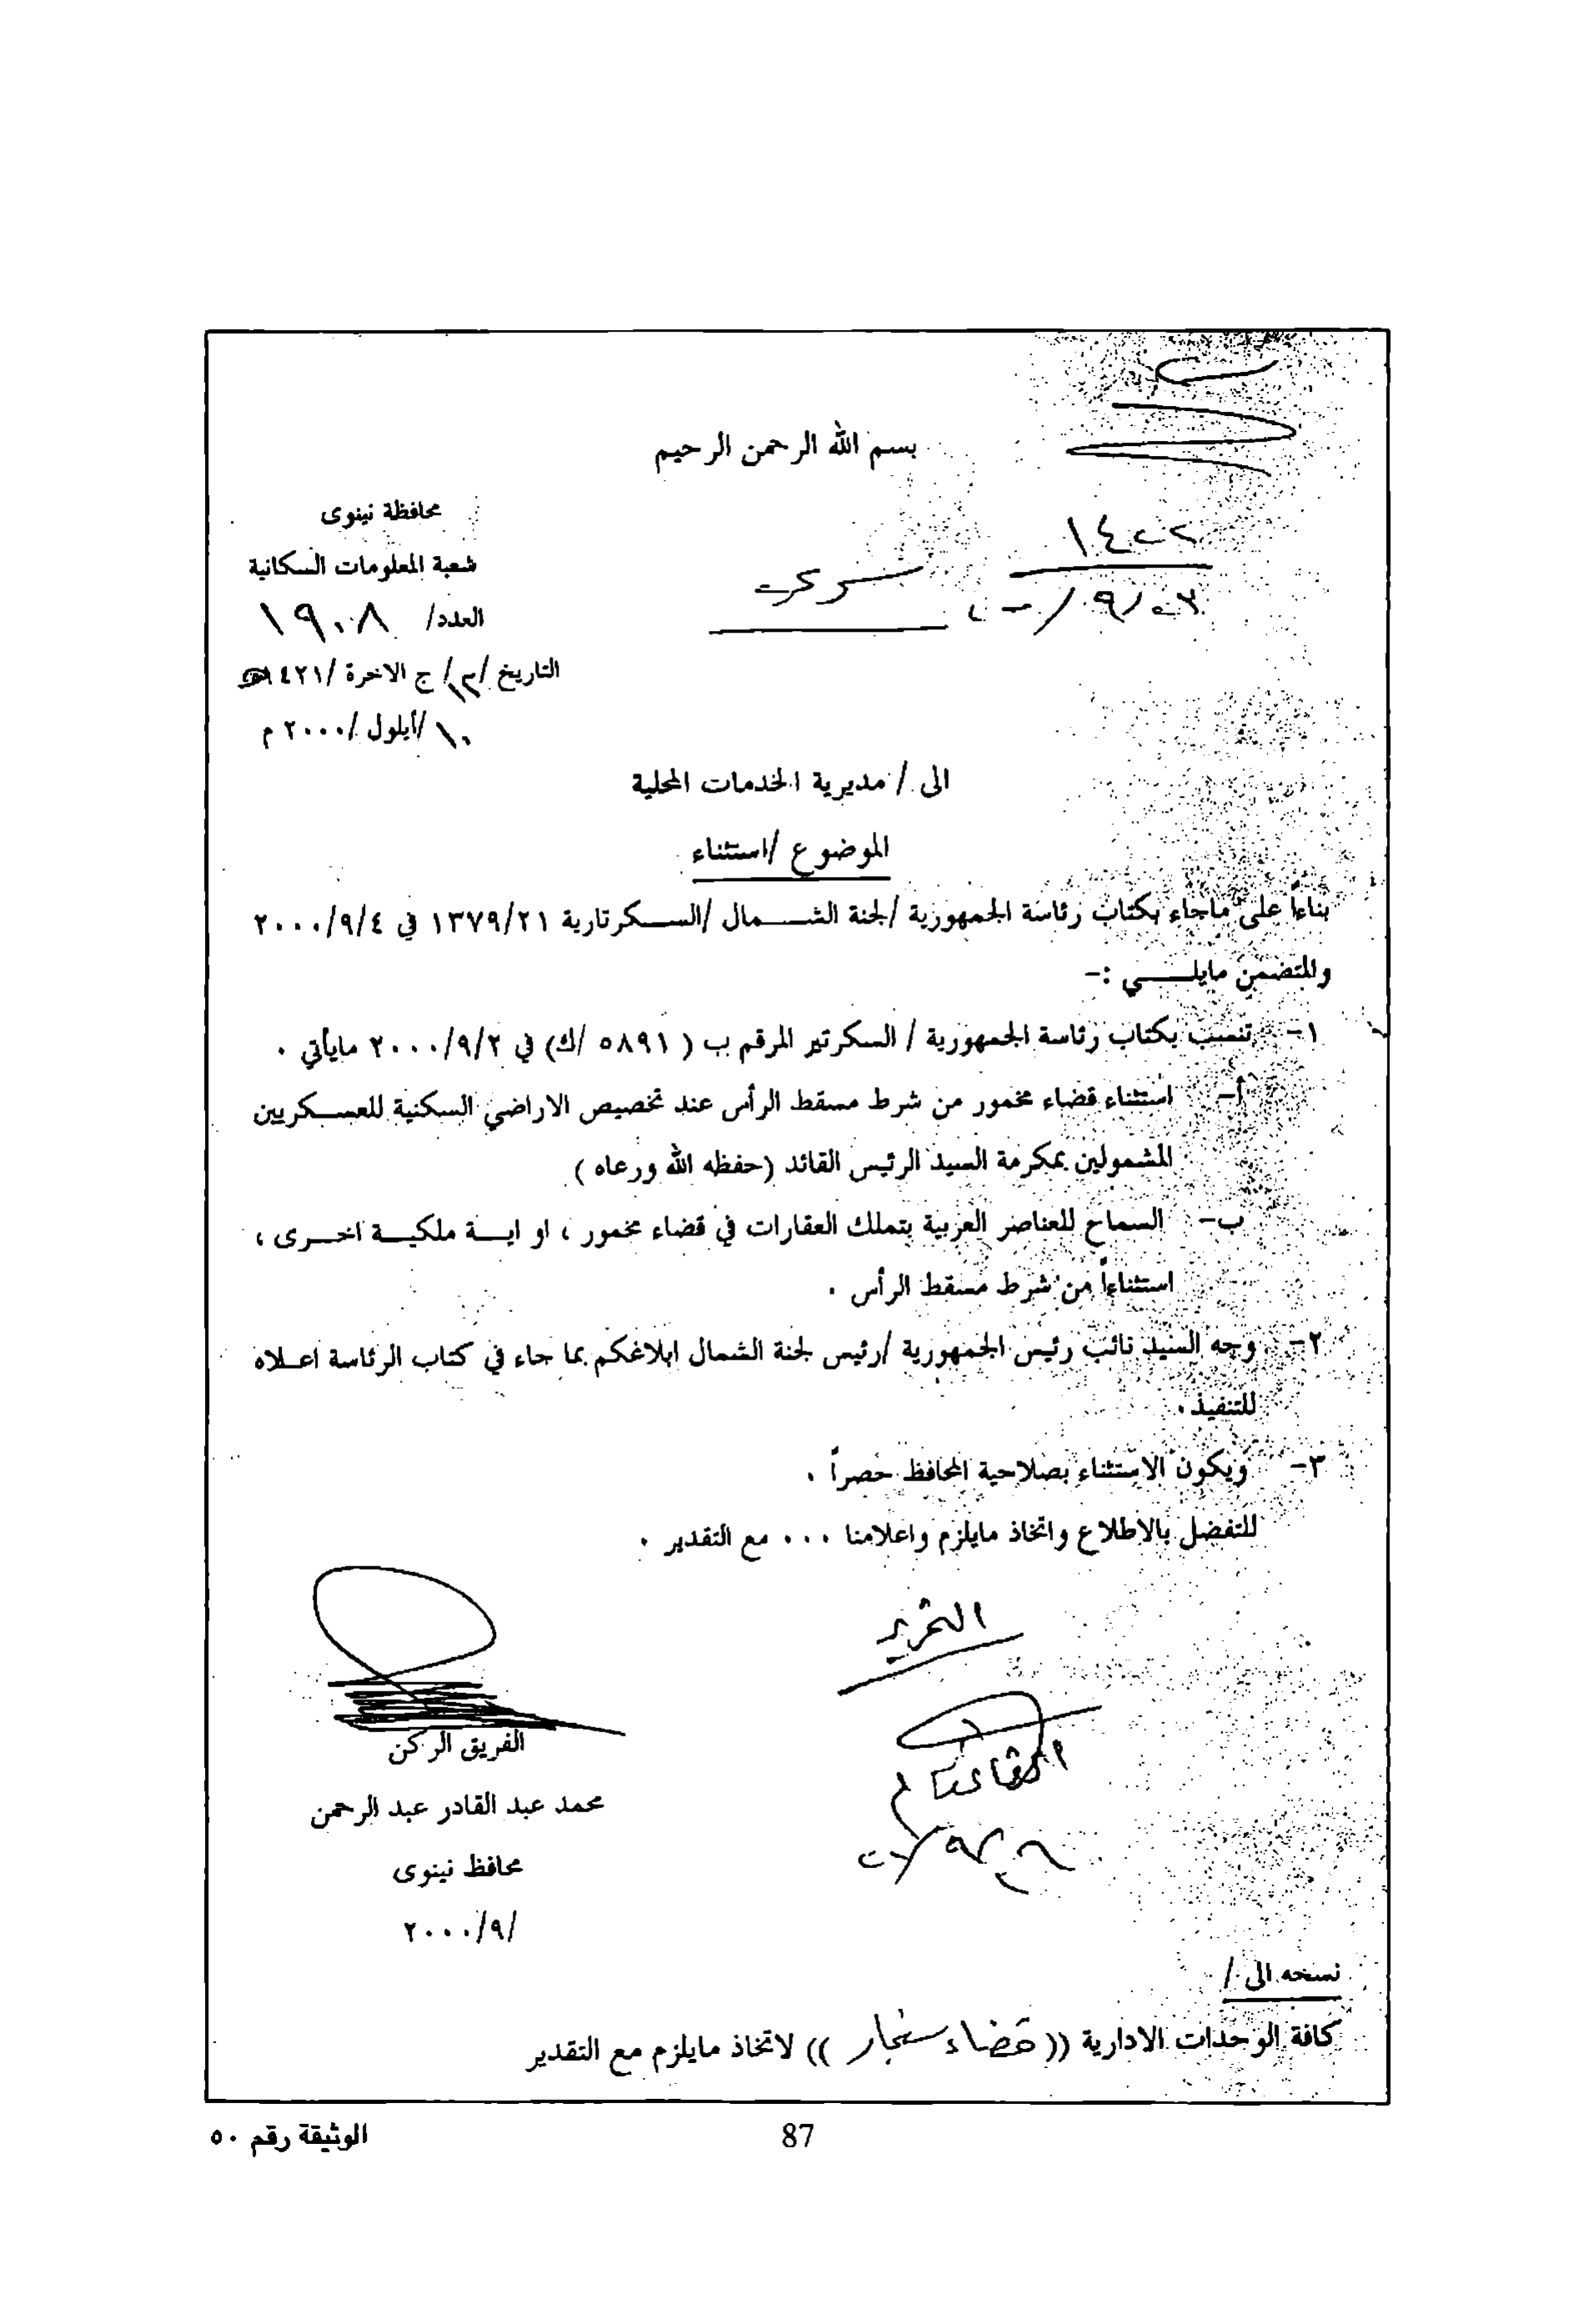 بسم الله الرحمن الرحيم
محافظة نينوى
شعبة المعلومات السكانية
العدد/ ١٩٠٨
سري
التاريخ /١٢/ ج الاخرة /١٤٢١هـ
١٠ /أيلول /٢٠٠٠ م
الى / مديرية الخدمات المحلية
الموضوع /استثناء
بناءاً على ماجاء بكتاب رئاسة الجمهورية /لجنة الشمال /السكرتارية ١٣٧٩/٢١ في ٢٠٠٠/٩/٤
والمتضمن مايلي :-
١- تنسب بكتاب رئاسة الجمهورية / السكرتير المرقم ب ( ٥٨٩١ /ك) في ٢٠٠٠/٩/٢ مايأتي .
أ- استثناء قضاء مخمور من شرط مسقط الرأس عند تخصيص الاراضي السكنية للعسكريين
المشمولين بمكرمة السيد الرئيس القائد (حفظه الله ورعاه )
ب- السماح للعناصر العربية بتملك العقارات في قضاء مخمور ، او اية ملكية اخرى ،
استثناءاً من شرط مسقط الرأس .
٢- وجه السيد نائب رئيس الجمهورية /رئيس لجنة الشمال ابلاغكم بما جاء في كتاب الرئاسة اعلاه
للتنفيذ .
٣- ويكون الاستثناء بصلاحية المحافظ حصراً .
للتفضل بالاطلاع واتخاذ مايلزم واعلامنا ... مع التقدير .
التحرير
القائمقام
الفريق الركن
محمد عبد القادر عبد الرحمن
محافظ نينوى
/٢٠٠٠/٩
نسخه الى /
كافة الوحدات الادارية (( قضاء سنجار )) لاتخاذ مايلزم مع التقدير
87
الوثيقة رقم ٥٠